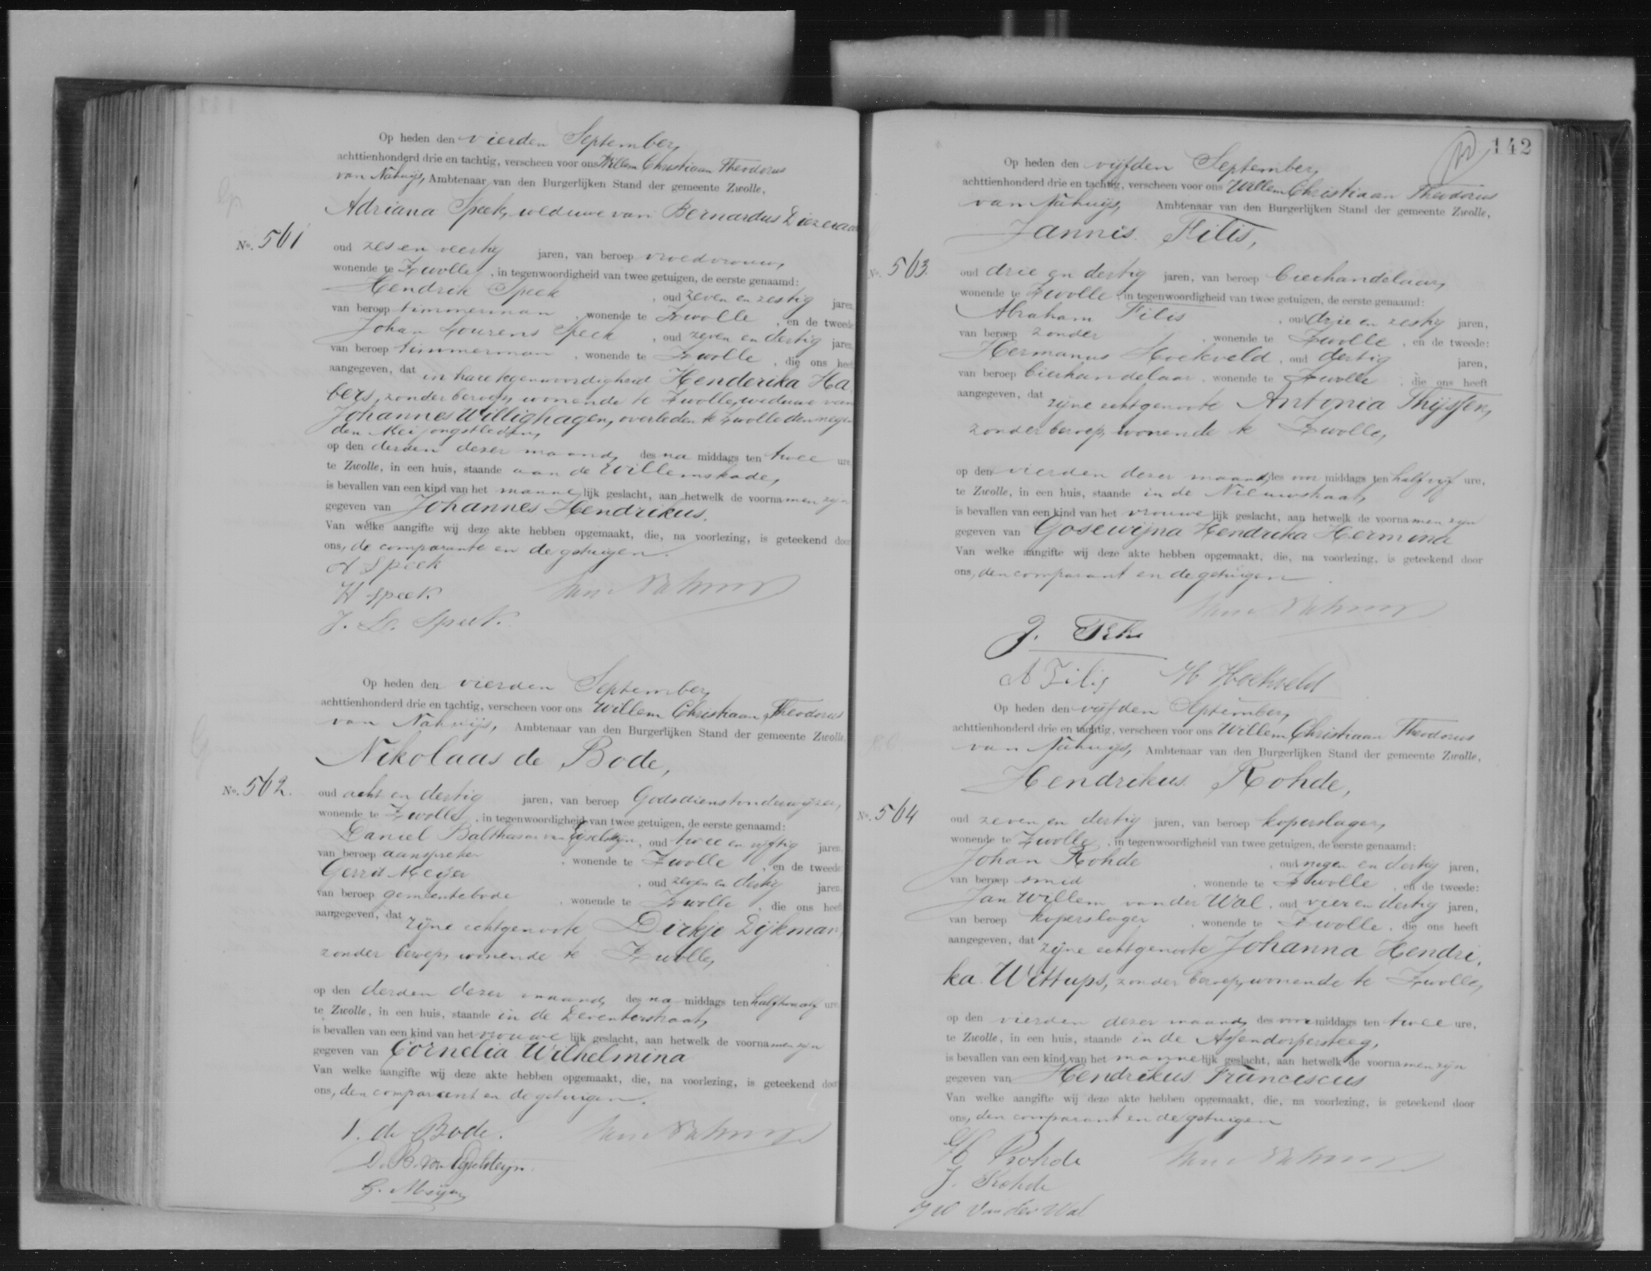 Op heden den vierden September,
achttienhonderd drie en tachtig, verscheen voor ons Willem Christiaan Theodorus
van Nahuijs, Ambtenaar van den Burgerlijken Stand der gemeente Zwolle,
Adriana Speek, weduwe van Bernardus
No. 561
oud zes en veertig jaren, van beroep vroedvrouw,
wonende te Zwolle, in tegenwoordigheid van twee getuigen, de eerste genaamd:
Hendrik Speek, oud zeven en zestig jaren,
van beroep timmerman, wonende te Zwolle, en de tweede
Johan Lourens Speek, oud zeven en dertig jaren,
van beroep timmerman, wonende te Zwolle, die ons heeft
aangegeven, dat in hare tegenwoordigheid Henderika Ha
bers, zonder beroep, wonende te Zwolle, weduwe van
Johannes Willighagen, overleden te Zwolle den negen
den Mei jongstleden,
op den derden dezer maand, des na middags ten twee ure
te Zwolle, in een huis, staande aan de Willemskade,
is bevallen van een kind van het mannelijk geslacht, aan hetwelk de voornamen zijn
gegeven van Johannes Hendrikus.
Van welke aangifte wij deze akte hebben opgemaakt, die, na voorlezing, is geteekend door
ons, de comparante en de getuigen.
A Speek
H Speek
J. L. Speek.
Op heden den vierden September,
achttienhonderd drie en tachtig, verscheen voor ons Willem Christiaan Theodorus
van Nahuijs, Ambtenaar van den Burgerlijken Stand der gemeente Zwolle,
Nikolaas de Bode,
No. 562.
oud acht en dertig jaren, van beroep Godsdienstonderwijzer,
wonende te Zwolle, in tegenwoordigheid van twee getuigen, de eerste genaamd:
Daniel Balthasar van IJsselsteijn, oud twee en vijftig jaren,
van beroep aanspreker, wonende te Zwolle, en de tweede
Gerrit Meijer, oud zeven en dertig jaren,
van beroep gemeentebode, wonende te Zwolle, die ons heeft
aangegeven, dat zijne echtgenoote Dirkje Dijkman,
zonder beroep, wonende te Zwolle,
op den derden dezer maand, des na middags ten half twaalf ure
te Zwolle, in een huis, staande in de Deventerstraat,
is bevallen van een kind van het vrouwelijk geslacht, aan hetwelk de voornamen zijn
gegeven van Cornelia Wilhelmina
Van welke aangifte wij deze akte hebben opgemaakt, die, na voorlezing, is geteekend door
ons, den comparant en de getuigen.
N. de Bode.
G. Meijer
142
Op heden den vijfden September,
achttienhonderd drie en tachtig, verscheen voor ons Willem Christiaan Theodorus
van Nahuijs, Ambtenaar van den Burgerlijken Stand der gemeente Zwolle,
Jannis Filis,
No. 563.
oud drie en dertig jaren, van beroep bierhandelaar,
wonende te Zwolle, in tegenwoordigheid van twee getuigen, de eerste genaamd:
Abraham Filis, oud drie en zestig jaren,
van beroep zonder, wonende te Zwolle, en de tweede:
Hermanus Hoekveld, oud dertig jaren,
van beroep bierhandelaar, wonende te Zwolle, die ons heeft
aangegeven, dat zijne echtgenoote Antonia Thijssen,
zonder beroep, wonende te Zwolle,
op den vierden dezer maand, des voor middags ten half vijf ure,
te Zwolle, in een huis, staande in de Nieuwstraat,
is bevallen van een kind van het vrouwelijk geslacht, aan hetwelk de voornamen zijn
gegeven van Gosewijna Hendrika Hermina
Van welke aangifte wij deze akte hebben opgemaakt, die, na voorlezing, is geteekend door
ons, den comparant en de getuigen.
J. Filis
A Filis H Hoekveld
Op heden den vijfden September,
achttienhonderd drie en tachtig, verscheen voor ons Willem Christiaan Theodorus
van Nahuijs, Ambtenaar van den Burgerlijken Stand der gemeente Zwolle,
Hendrikus Rohde,
No. 564
oud zeven en dertig jaren, van beroep koperslager,
wonende te Zwolle, in tegenwoordigheid van twee getuigen, de eerste genaamd:
Johan Rohde, oud negen en dertig jaren,
van beroep smid, wonende te Zwolle, en de tweede:
Jan Willem van der Wal, oud vier en dertig jaren,
van beroep koperslager, wonende te Zwolle, die ons heeft
aangegeven, dat zijne echtgenoote Johanna Hendri,
ka Wittups, zonder beroep, wonende te Zwolle,
op den vierden dezer maand, des voor middags ten twee ure,
te Zwolle, in een huis, staande in de Assendorpersteeg,
is bevallen van een kind van het mannelijk geslacht, aan hetwelk de voornamen zijn
gegeven van Hendrikus Franciscus
Van welke aangifte wij deze akte hebben opgemaakt, die, na voorlezing, is geteekend door
ons, den comparant en de getuigen
H Rohde
J. Rohde
J W van der Wal